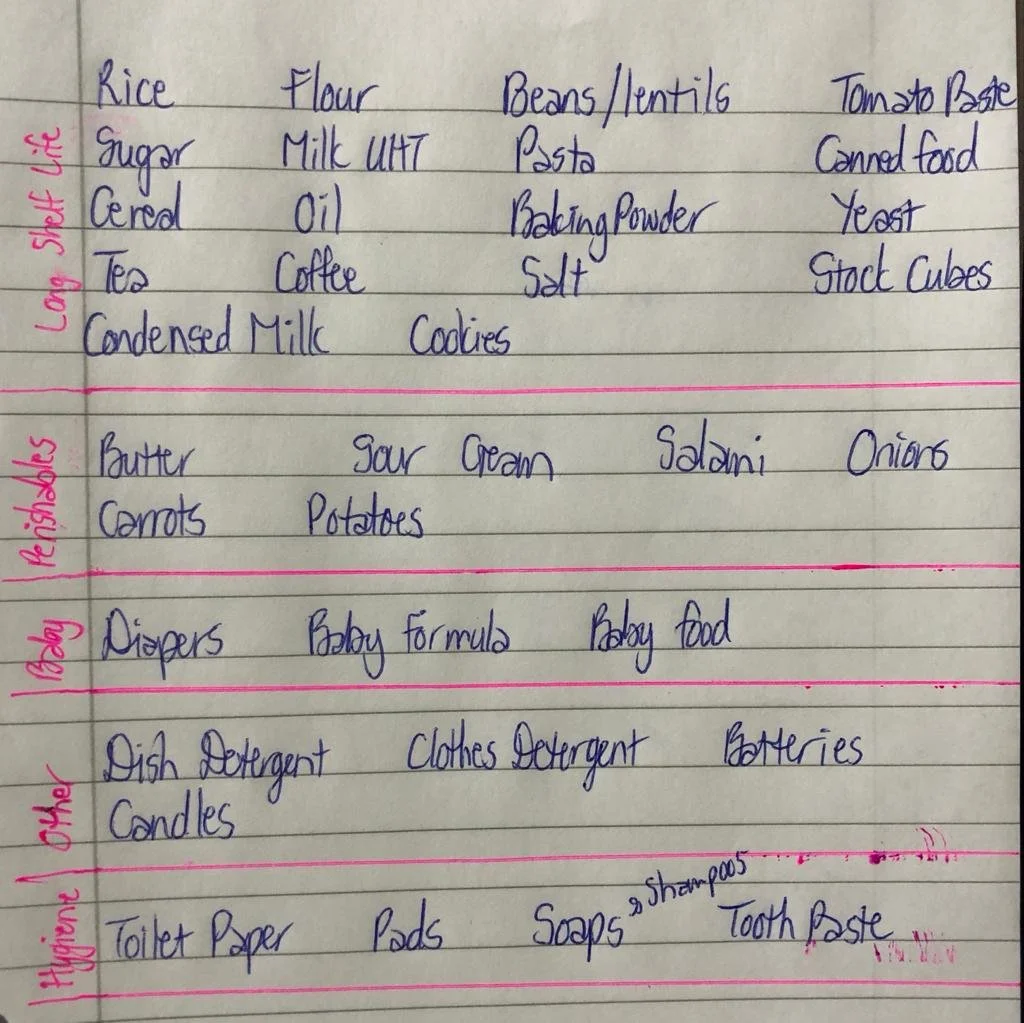 Long Shelf Life
Rice Flour Beans/lentils Tomato Paste
Sugar Milk UHT Pasta Canned food
Cereal Oil Baking Powder Yeast
Tea Coffee Salt Stock Cubes
Condensed Milk Cookies
Perishables
Butter Sour Cream Salami Onions
Carrots Potatoes
Baby
Diapers Baby formula Baby food
Other
Dish Detergent Clothes Detergent Batteries
Candles
Hygiene
Toilet Paper Pads Soaps & Shampoos Tooth Paste